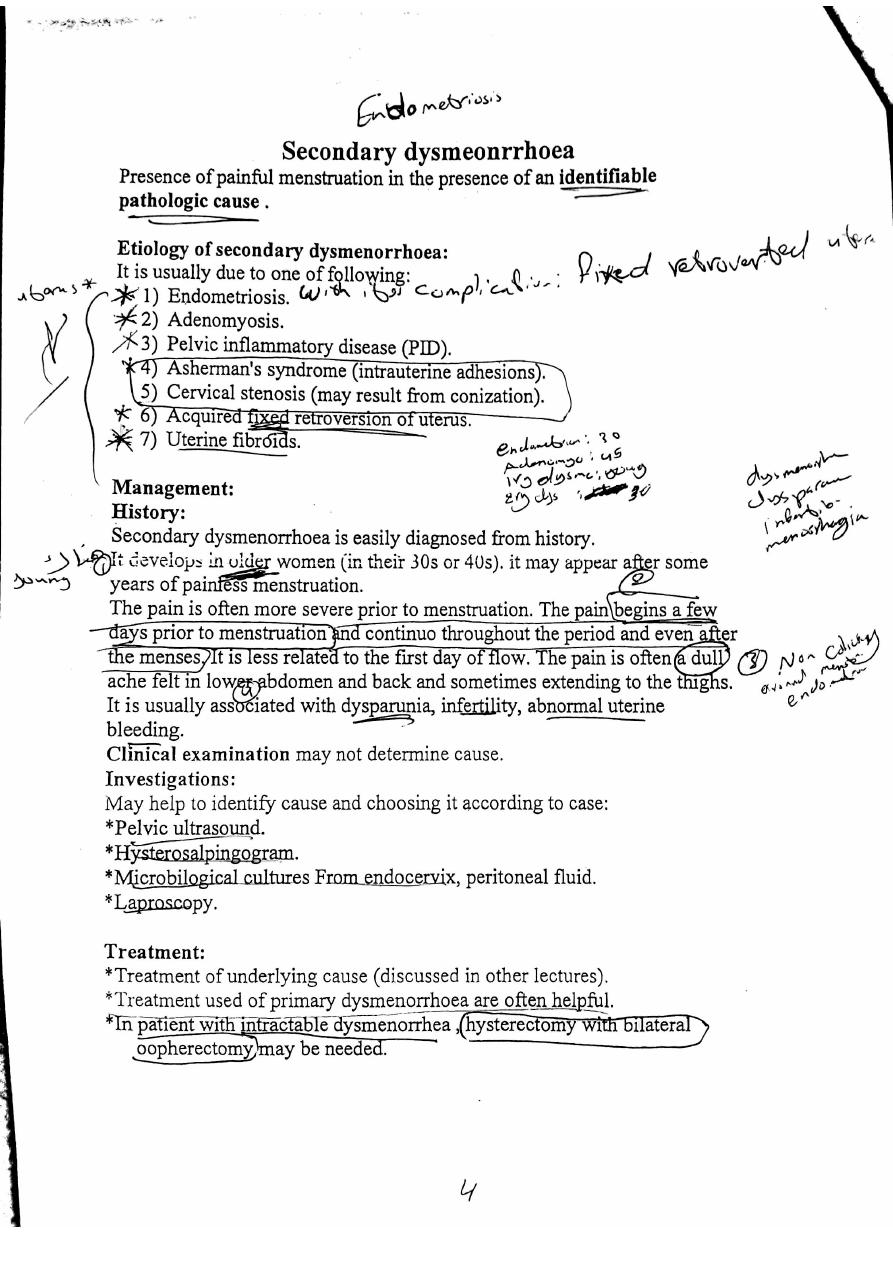 Endometriosis
Secondary dysmeonrrhoea
Presence of painful menstruation in the presence of an identifiable
pathologic cause .
Etiology of secondary dysmenorrhoea:
It is usually due to one of following:
1) Endometriosis. with its complication: fixed retroverted
2) Adenomyosis.
3) Pelvic inflammatory disease (PID).
4) Asherman's syndrome (intrauterine adhesions).
5) Cervical stenosis (may result from conization).
6) Acquired fixed retroversion of uterus.
7) Uterine fibroids.
: 30
: 45
young
30
dysmenorrhe
dyspareu
infertib-
menorrhagia
Management:
History:
Secondary dysmenorrhoea is easily diagnosed from history.
young
1 It develops in older women (in their 30s or 40s). it may appear after some
years of painless menstruation.
2
The pain is often more severe prior to menstruation. The pain begins a few
days prior to menstruation and continuo throughout the period and even after
the menses, It is less related to the first day of flow. The pain is often a dull
3 Non Colicky
ache felt in lower abdomen and back and sometimes extending to the thighs.
4
It is usually associated with dysparunia, infertility, abnormal uterine
bleeding.
Clinical examination may not determine cause.
Investigations:
May help to identify cause and choosing it according to case:
*Pelvic ultrasound.
*Hysterosalpingogram.
*Microbilogical cultures From endocervix, peritoneal fluid.
*Laproscopy.
Treatment:
*Treatment of underlying cause (discussed in other lectures).
*Treatment used of primary dysmenorrhoea are often helpful.
*In patient with intractable dysmenorrhea ,hysterectomy with bilateral
oopherectomy may be needed.
4